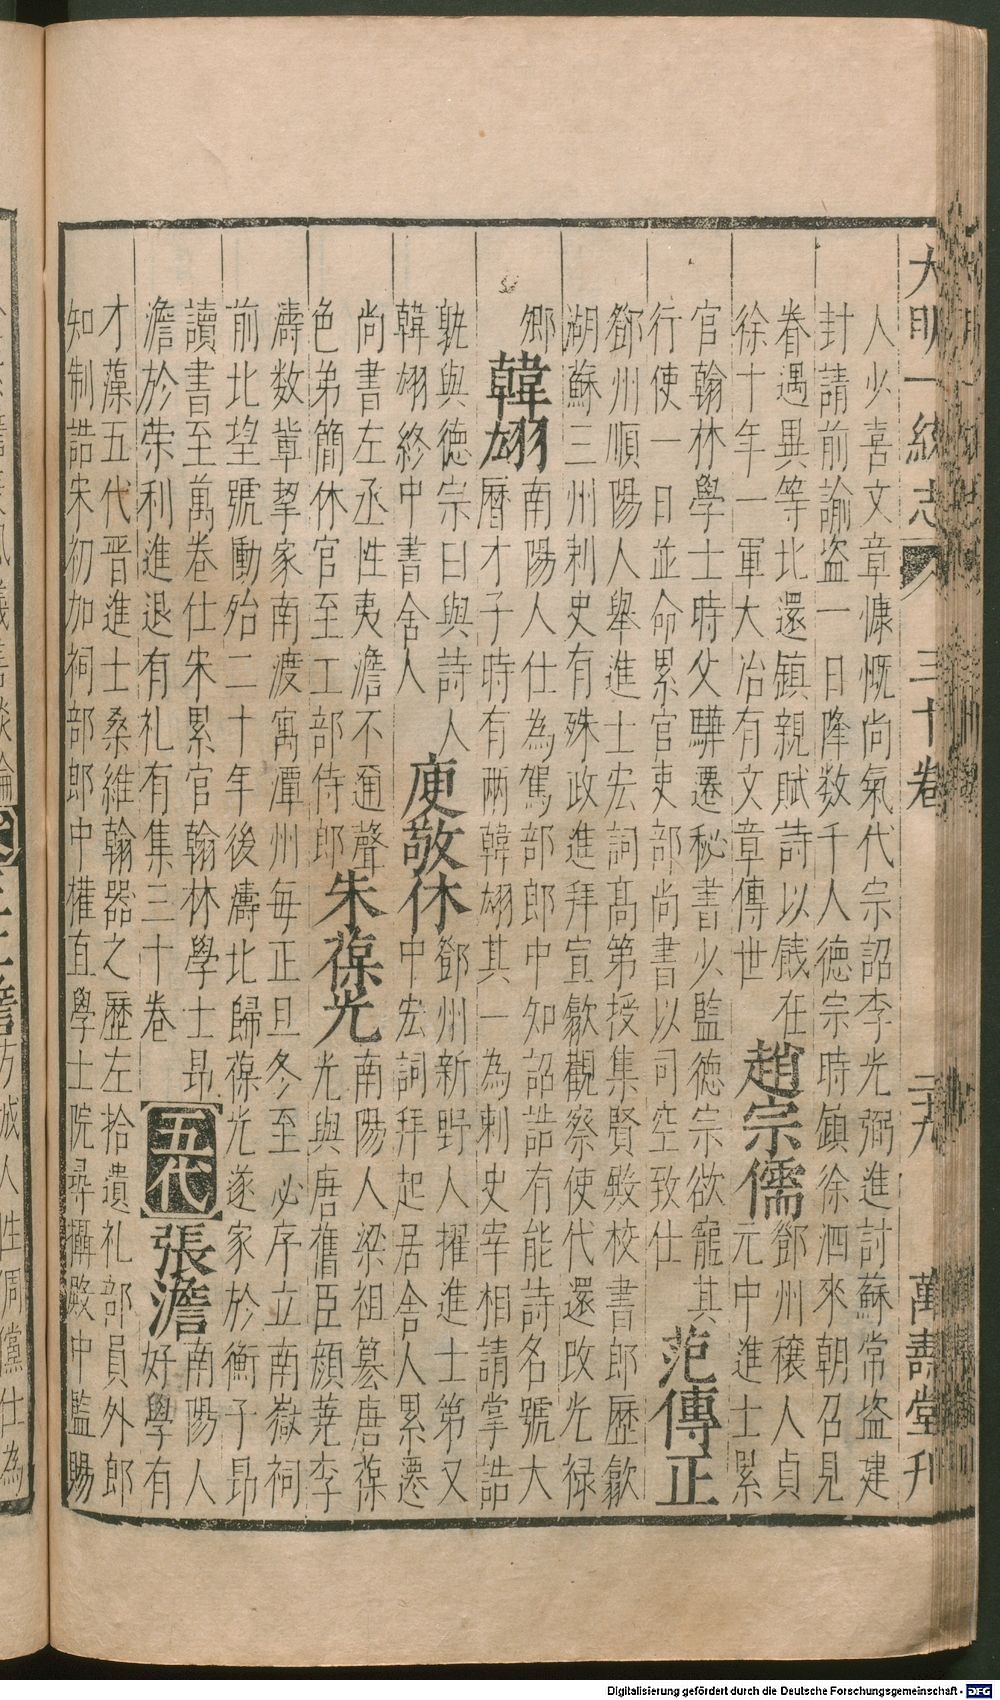 大明一統志 三十卷 二十九 萬壽堂刊
人少喜文章慷慨尚氣代宗詔李光弼進討蘇常盗建
封請前諭盗一日降数千人德宗時鎮徐泗來朝召見
眷遇異等北還鎮親賦詩以餞在
徐十年一軍大治有文章傳世
趙宗儒
鄧州穰人貞
元中進士累
官翰林學士時父驊遷秘書少監德宗欲寵其
行使一日並命累官吏部尚書以司空致仕
范傳正
鄧州順陽人舉進士宏詞髙第授集賢殿校書郎歷歙
湖蘇三州刺史有殊政進拜宣歙觀察使代還改光禄
卿
韓翃
南陽人仕為駕部郎中知詔誥有能詩名號大
曆才子時有两韓翃其一為刺史宰相請掌誥
孰與德宗曰與詩人
韓翃終中書舍人
庾敬休
鄧州新野人擢進士第又
中宏詞拜起居舍人累遷
尚書左丞性夷澹不通聲
色弟簡休官至工部侍郎
朱葆光
南陽人梁祖篡唐葆
光與唐舊臣顔蕘李
濤数軰挈家南渡寓潭州每正旦冬至必序立南嶽祠
前北望號慟殆二十年後濤北歸葆光遂家於衡子昻
讀書至萬卷仕宋累官翰林學士昻
澹於荣利進退有礼有集三十卷
五代
張澹
南陽人
好學有
才藻五代晋進士桑維翰器之歷左拾遺礼部員外郎
知制誥宋初加祠部郎中權直學士院尋攝殿中監賜
方城人性倜儻仕為
Digitalisierung gefördert durch die Deutsche Forschungsgemeinschaft - DFG